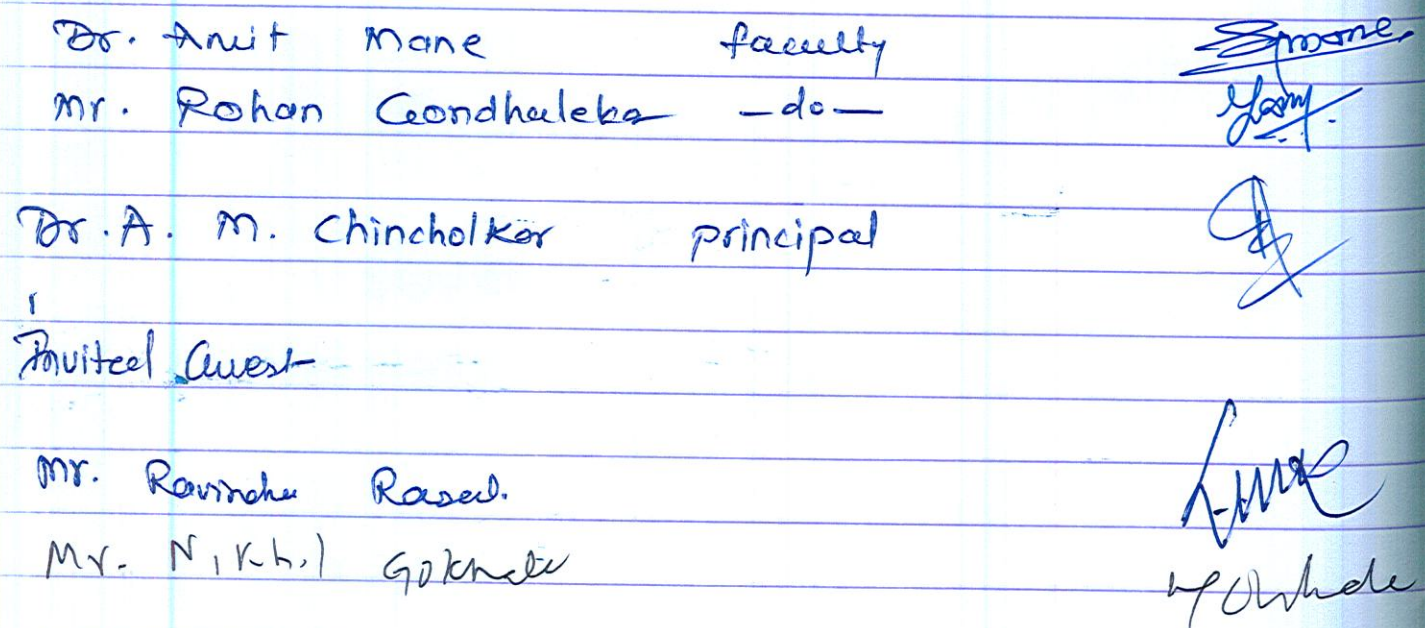 Dr. Amit Mane faculty
Mr. Rohan Gondhaleka —do—
Dr. A. M. Chincholkar principal
Invited Guest
Mr. Ravindra Rasal.
Mr. Nikhil Gokhale